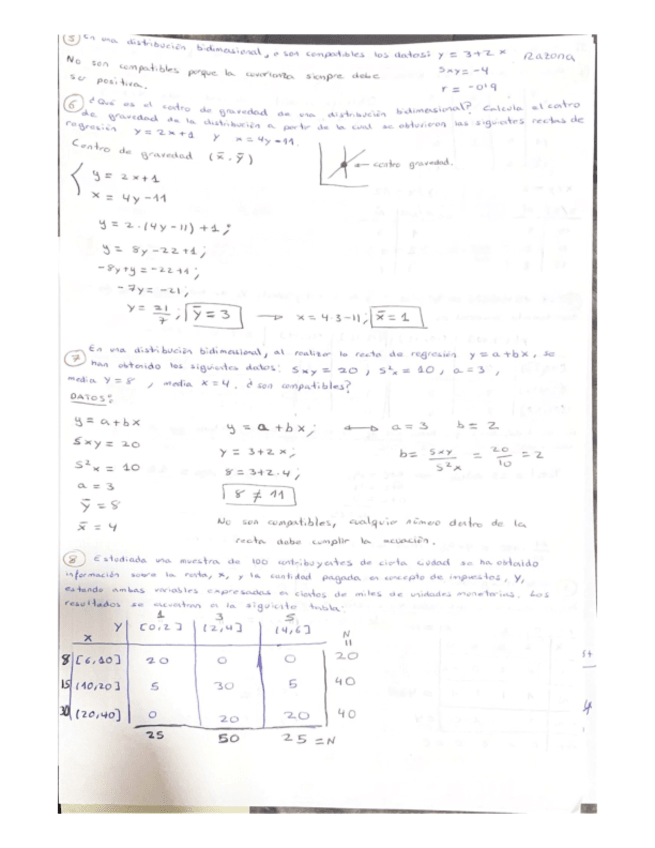 5 En una distribución bidimensional, ¿ son compatibles los datos: y = 3+2x Razona
No son compatibles porque la covarianza siempre debe Sxy = -4
ser positiva. r = -0'9
6 ¿Qué es el centro de gravedad de una distribución bidimensional? Calcula el centro
de gravedad de la distribución a partir de la cual se obtuvieron las siguientes rectas de
regresión y = 2x+1 y x = 4y-11.
Centro de gravedad (x̄, ȳ)
centro gravedad.
y = 2x+1
x = 4y-11
y = 2·(4y-11)+1;
y = 8y-22+1;
-8y+y = -22+1;
-7y = -21;
y = 21/7; ȳ = 3 → x = 4·3-11; x̄ = 1
7 En una distribución bidimensional, al realizar la recta de regresión y = a+bx, se
han obtenido los siguientes datos: Sxy = 20, S²x = 10, a = 3,
media y = 8, media x = 4. ¿ son compatibles?
DATOS:
y = a+bx y = a+bx; a = 3 b = 2
Sxy = 20 y = 3+2x; b = Sxy/S²x = 20/10 = 2
S²x = 10 8 = 3+2·4;
a = 3 8 ≠ 11
ȳ = 8
x̄ = 4 No son compatibles, cualquier número dentro de la
recta debe cumplir la ecuación.
8 Estudiada una muestra de 100 contribuyentes de cierta ciudad se ha obtenido
información sobre la renta, x, y la cantidad pagada en concepto de impuestos, y,
estando ambas variables expresadas en cientos de miles de unidades monetarias. Los
resultados se encuentran en la siguiente tabla:
1 3 5
Y [0,2] (2,4] (4,6] N
X 11
8 [6,10] 20 0 0 20
15 (10,20] 5 30 5 40
30 (20,40] 0 20 20 40
25 50 25 = N